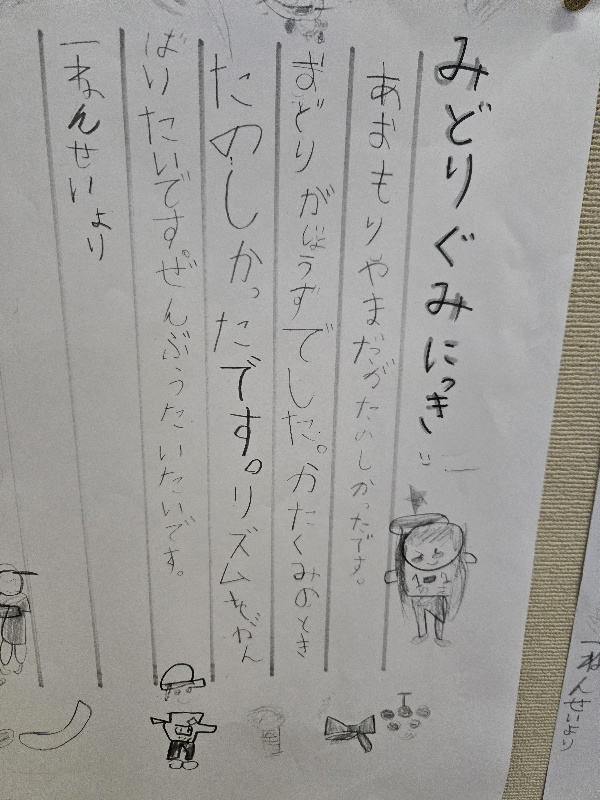 みどりぐみにっき
あおもりやまだがたのしかったです。
おどりがじょうずでした。かたくみのとき
たのしかったです。リズムもがん
ばりたいです。ぜんぶうたいたいです。
一ねんせいより
一ねんせいより